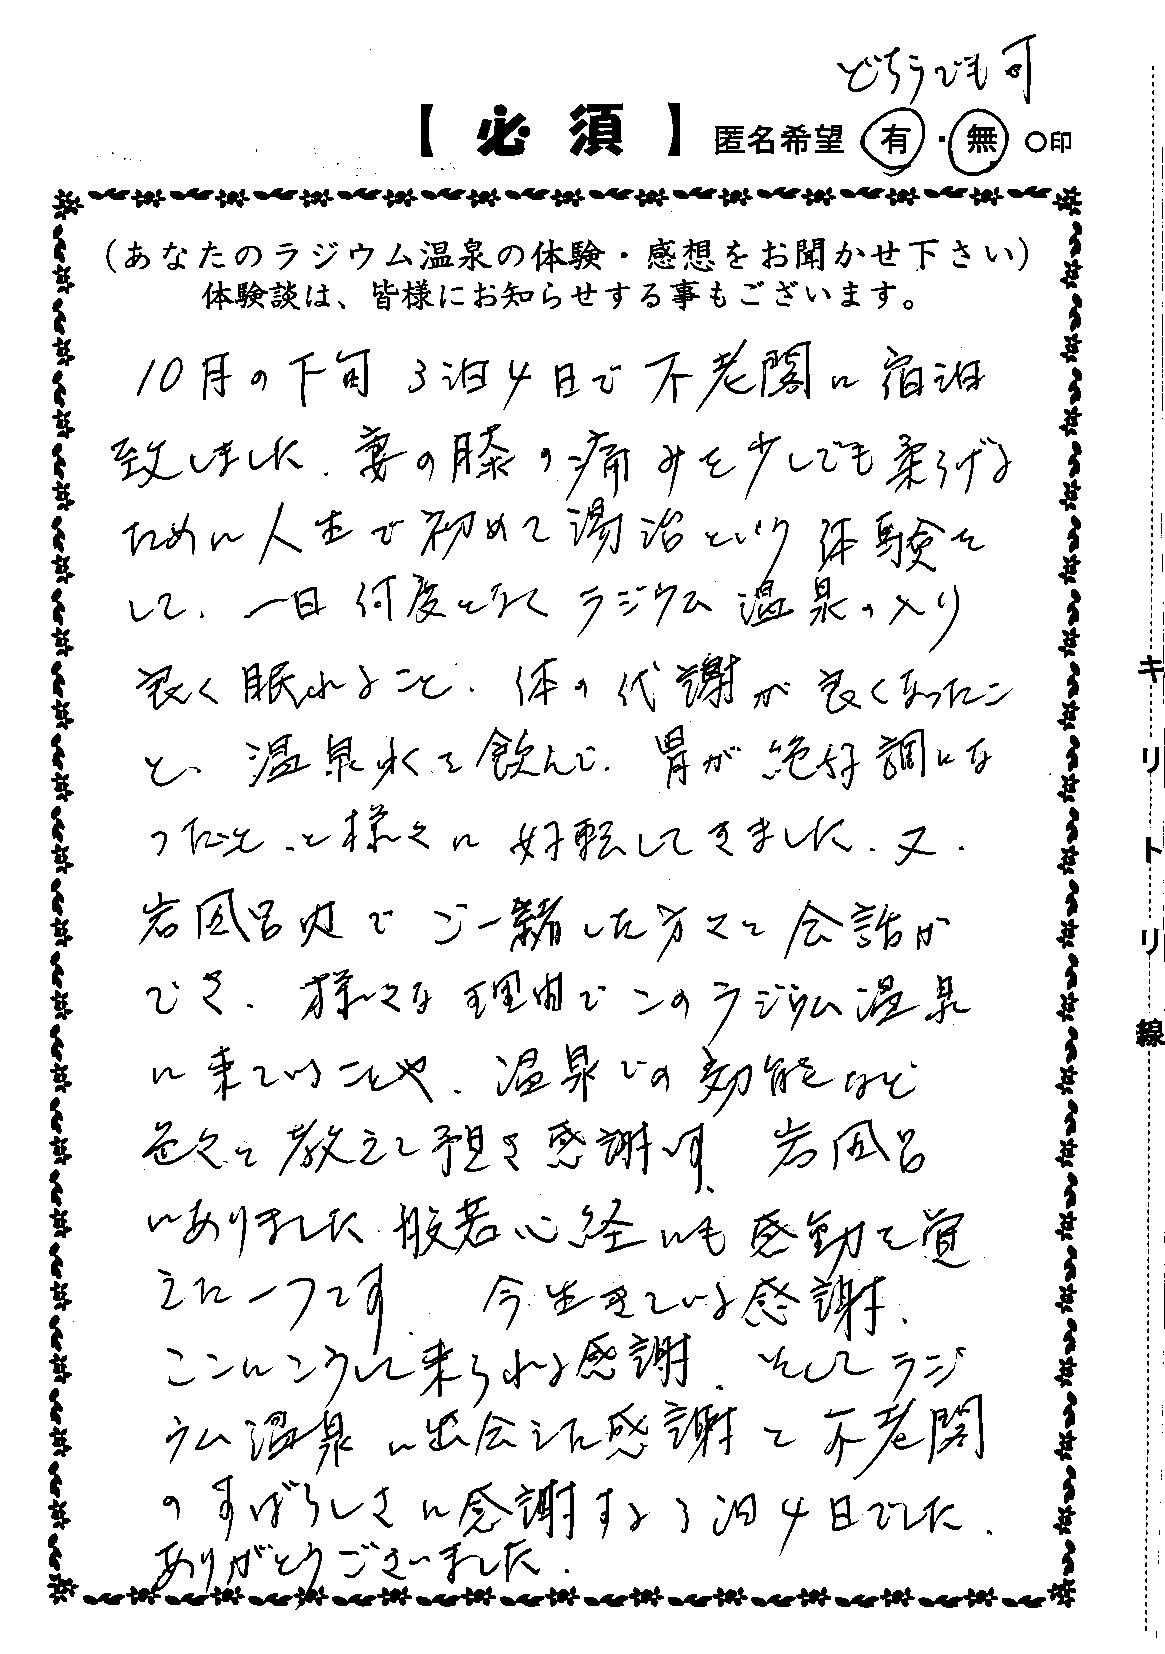 どちらでも可
【必須】匿名希望 有・無 ○印
(あなたのラジウム温泉の体験・感想をお聞かせ下さい)
体験談は、皆様にお知らせする事もございます。
10月の下旬 3泊4日で不老閣に宿泊
致しました、妻の膝の痛みを少しでも柔らげる
ために人生で初めて湯治という体験を
して、一日何度となくラジウム温泉の入り
良く眠れること、体の代謝が良くなったこ
と、温泉水を飲んで、胃が絶好調にな
ったこと、と様々に好転してきました、又、
岩風呂内でご一緒した方々と会話が
でき、様々な理由でこのラジウム温泉
に来ていることや、温泉での効能など
色々と教えて頂き感謝です、岩風呂
にありました般若心経にも感動を覚
えた一つです、今生きている感謝、
ここにこうして来られる感謝、そしてラジ
ウム温泉に出会えた感謝と不老閣
のすばらしさに感謝する3泊4日でした、
ありがとうございました、
キリトリ線